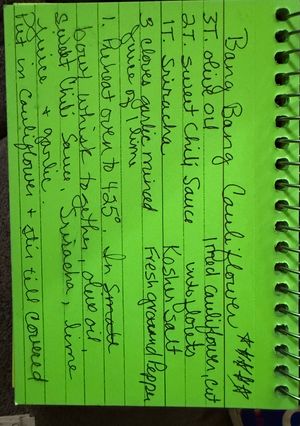 Bang Bang Cauliflower ****
3T. olive oil 1 head cauliflower, cut
2T. sweet Chili Sauce into florets
1T. Sriracha Kosher Salt
3 cloves garlic minced Fresh ground Pepper
juice of 1 lime
1. Preheat oven to 425°. In small
bowl whisk together, olive oil,
sweet chili sauce, Sriracha, lime
juice + garlic.
Put in cauliflower + stir till covered